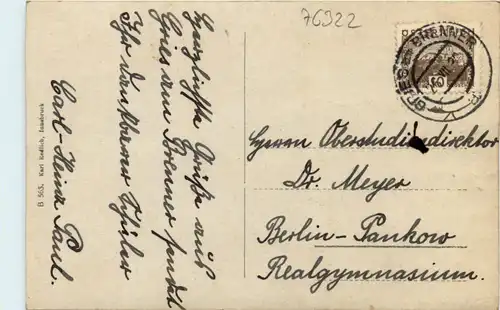 76922
GRIES AM BRENNER
Herzlichste Grüße aus
Gries am Brenner sendet
Ihr dankbarer Schüler
Carl-Heinz Paul.
B 565, Karl Redlich, Innsbruck
Herrn Oberstudiendirektor
Dr. Meyer
Berlin-Pankow
Realgymnasium.